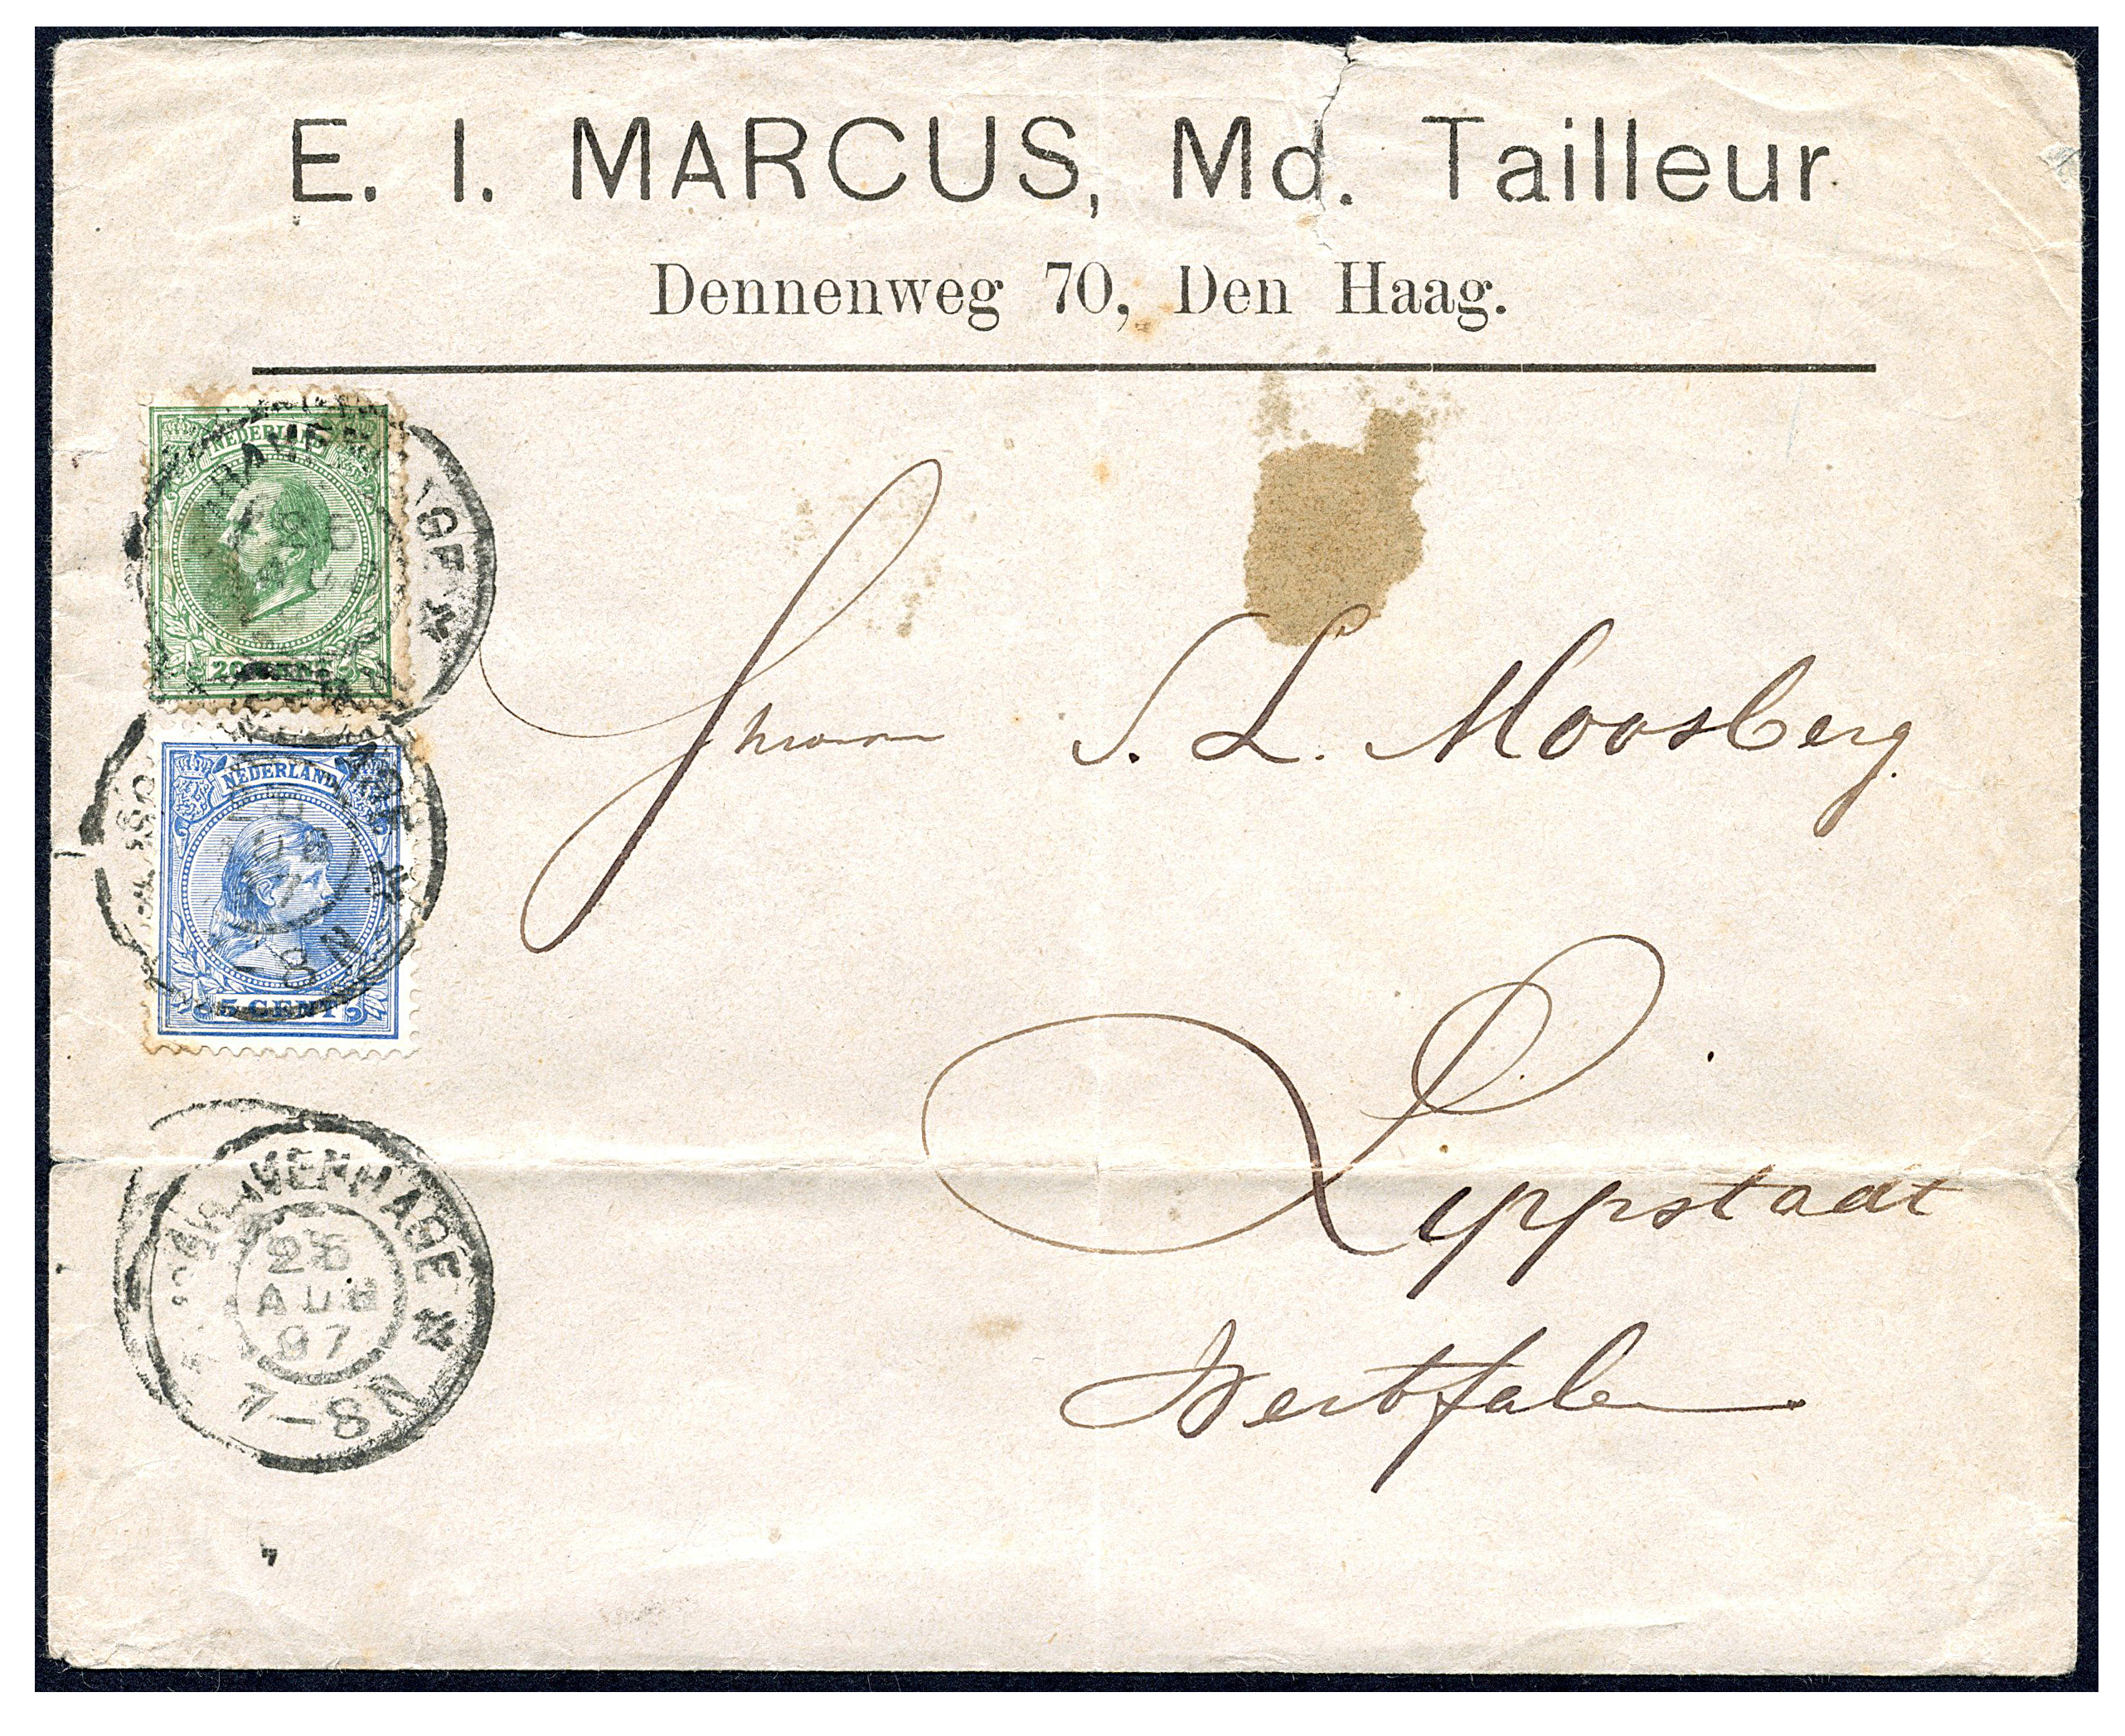 E. I. MARCUS, Md. Tailleur
Dennenweg 70, Den Haag.
NEDERLAND
20 CENT
NEDERLAND
5 CENT
S. L. Moosberg
Lippstadt
Westfalen
'S GRAVENHAGE
25
AUG
97
7-8N